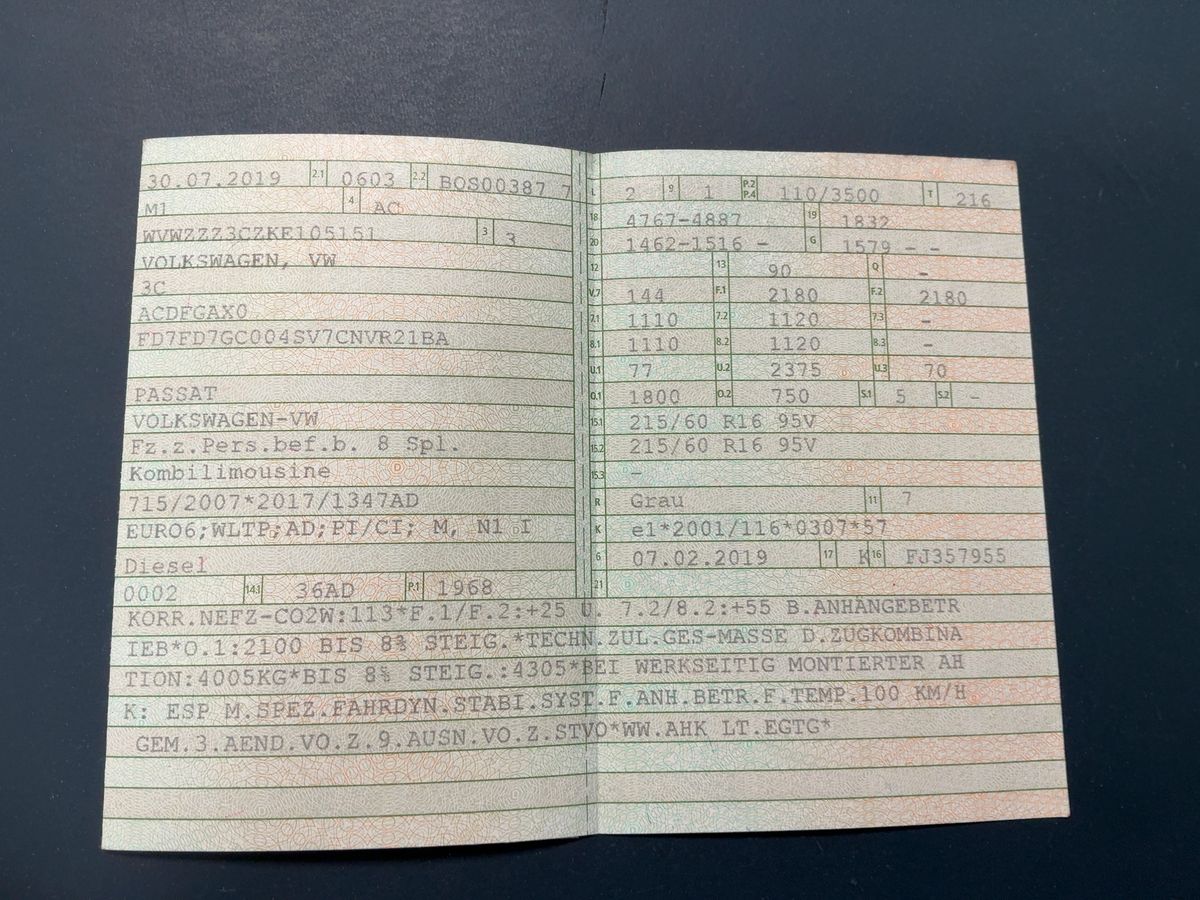 30.07.2019 2.1 0603 2.2 BOS00387 7
M1 4 AC
WVWZZZ3CZKE105151 3 3
VOLKSWAGEN, VW
3C
ACDFGAX0
FD7FD7GC004SV7CNVR21BA
PASSAT
VOLKSWAGEN-VW
Fz.z.Pers.bef.b. 8 Spl.
Kombilimousine
715/2007*2017/1347AD
EURO6;WLTP;AD;PI/CI; M, N1 I
Diesel
0002 14.1 36AD P.1 1968
L 2 9 1 P.2 P.4 110/3500 T 216
18 4767-4887 19 1832
20 1462-1516 - G 1579 - -
12 13 90 Q -
V.7 144 F.1 2180 F.2 2180
7.1 1110 7.2 1120 7.3 -
8.1 1110 8.2 1120 8.3 -
U.1 77 U.2 2375 U.3 70
O.1 1800 O.2 750 S.1 5 S.2 -
15.1 215/60 R16 95V
15.2 215/60 R16 95V
15.3 -
R Grau 11 7
K e1*2001/116*0307*57
6 07.02.2019 17 K 16 FJ357955
21
KORR.NEFZ-CO2W:113*F.1/F.2:+25 U. 7.2/8.2:+55 B.ANHÄNGEBETR
IEB*O.1:2100 BIS 8% STEIG.*TECHN.ZUL.GES-MASSE D.ZUGKOMBINA
TION:4005KG*BIS 8% STEIG.:4305*BEI WERKSEITIG MONTIERTER AH
K: ESP M.SPEZ.FAHRDYN.STABI.SYST.F.ANH.BETR.F.TEMP.100 KM/H
GEM.3.AEND.VO.Z.9.AUSN.VO.Z.STVO*WW.AHK LT.EGTG*